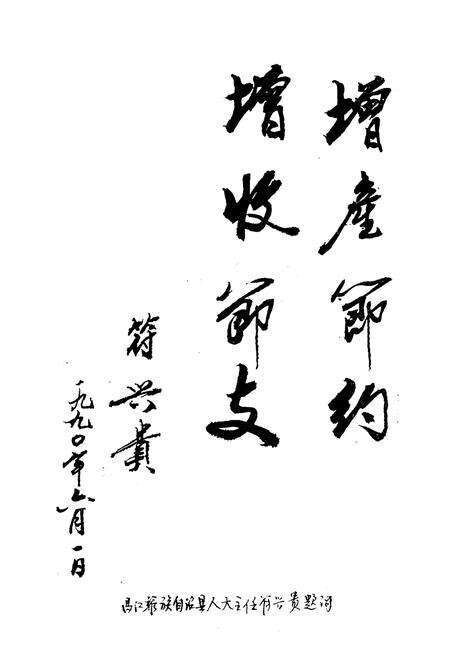 增產節约
增收節支
符兴贵
一九九〇年六月一日
昌江黎族自治县人大主任符兴贵题词